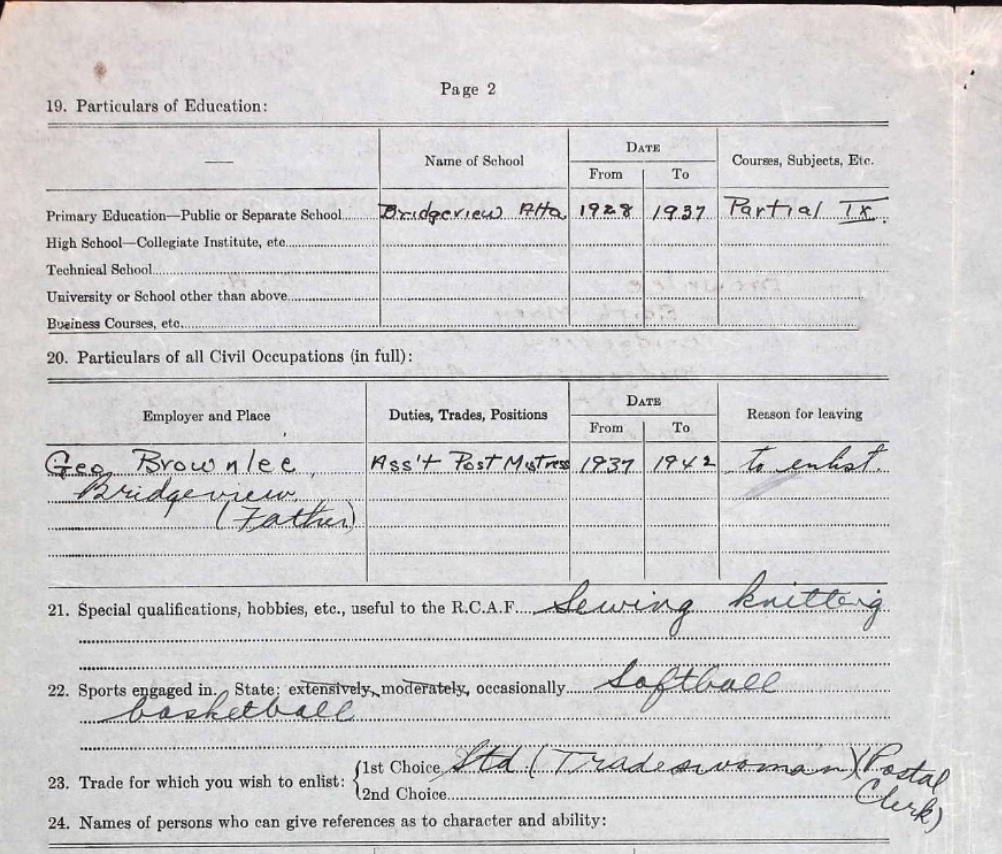 Page 2
19. Particulars of Education:
— Name of School DATE Courses, Subjects, Etc.
From To
Primary Education—Public or Separate School Bridgeview Alta 1928 1937 Partial IX.
High School—Collegiate Institute, etc
Technical School
University or School other than above
Business Courses, etc.
20. Particulars of all Civil Occupations (in full):
Employer and Place Duties, Trades, Positions DATE Reason for leaving
From To
Geo Brownlee, Ass't Post Mistress 1937 1942 to enlist.
Bridgeview
(Father)
21. Special qualifications, hobbies, etc., useful to the R.C.A.F. Sewing knitting
22. Sports engaged in. State: extensively, moderately, occasionally Softball
basketball
23. Trade for which you wish to enlist: 1st Choice Std (Tradeswoman) (Postal
2nd Choice Clerk)
24. Names of persons who can give references as to character and ability: